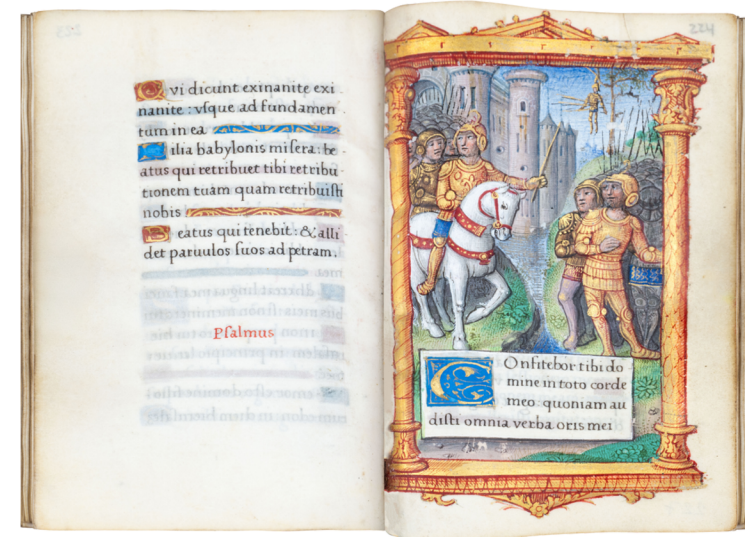 Qvi dicunt exinanite exi
nanite : vſque ad fundamen
tum in ea
Filia babylonis miſera : be
atus qui retribuet tibi retribu
tionem tuam quam retribuiſti
nobis
Beatus qui tenebit : & alli
det paruulos ſuos ad petram.
Pſalmus
224
COnfitebor tibi do
mine in toto corde
meo : quoniam au
diſti omnia verba oris mei